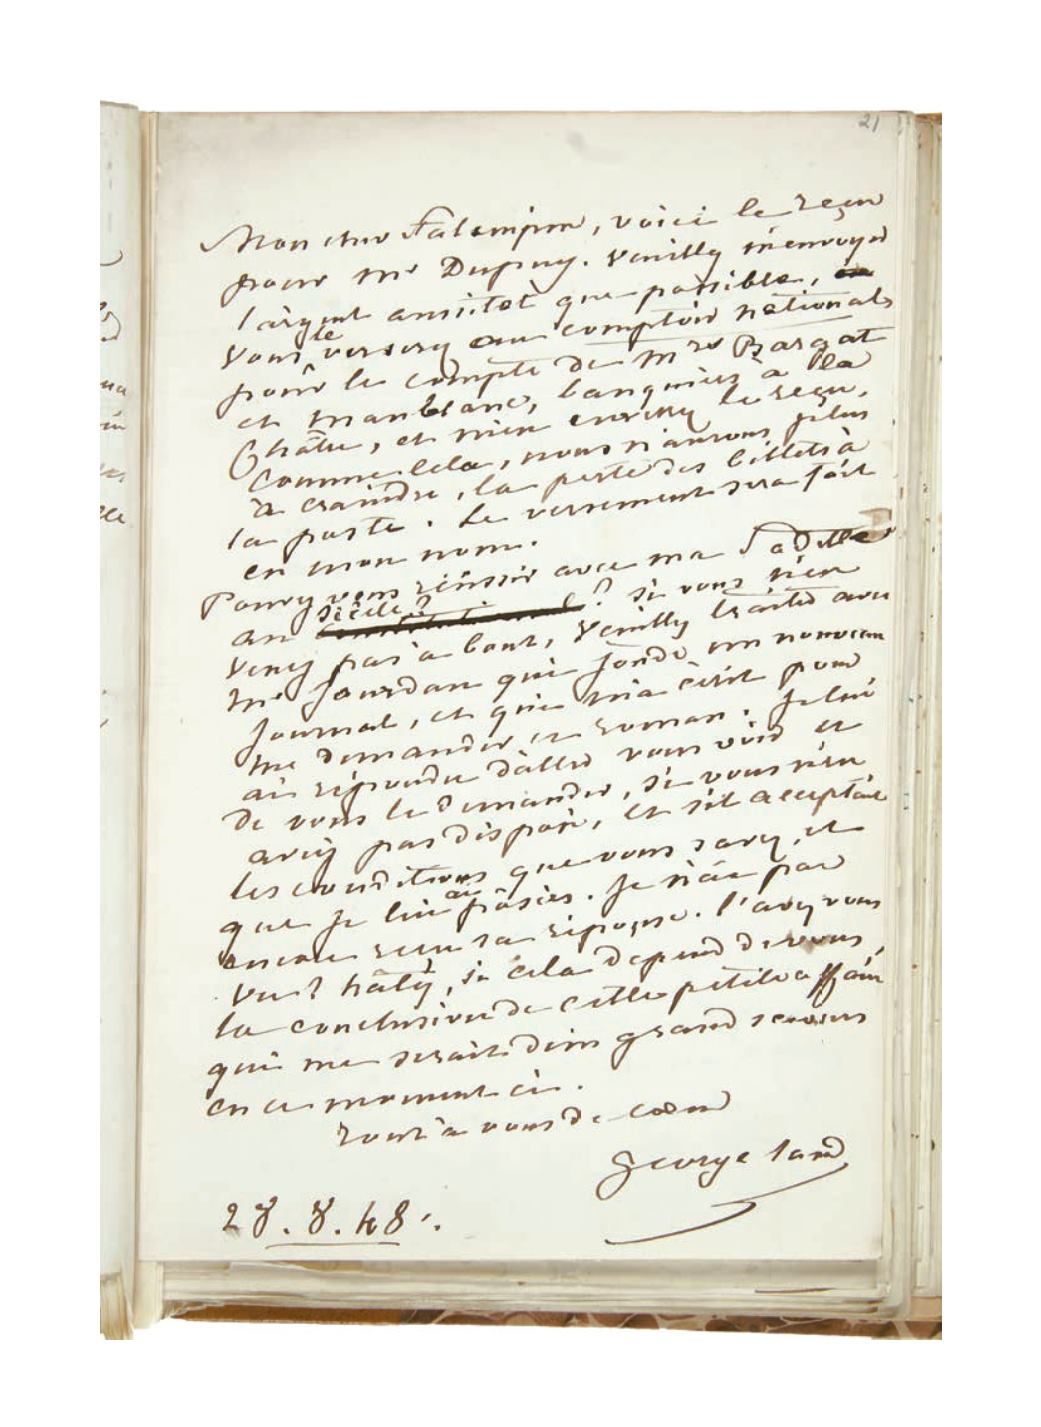 21
Mon cher Falampin, voici le reçu
pour Mr Dupuy. Veuillez m'envoyer
l'argent aussitôt que possible, ou
vous le verserez au comptoir national
pour le compte de Mrs
et Manblanc, banquiers à la
Châtre, et m'en enverrez le reçu.
Comme cela, nous n'aurons plus
à craindre, la perte des billets à
la poste. Le versement sera fait
en mon nom.
Pourez vous réussir avec ma Fadette
au siècle? ? si vous n'en
venez pas à bout, veuillez traiter avec
Mr Jourdan qui fonde un nouveau
journal, et qui m'a écrit pour
me demander ce roman. Je lui
ai répondu d'aller vous voir et
de vous le demander, si vous n'en
aviez pas disposé, et s'il acceptait
les conditions que vous savez, et
que je lui ai posées. Je n'ai pas
encore reçu sa réponse. l'avez vous
vu? hâtez, si cela dépend de vous,
la conclusion de cette petite affaire
qui me serait d'un grand secours
en ce moment ci.
Tout à vous de cœur
George Sand
28. 8. 48.